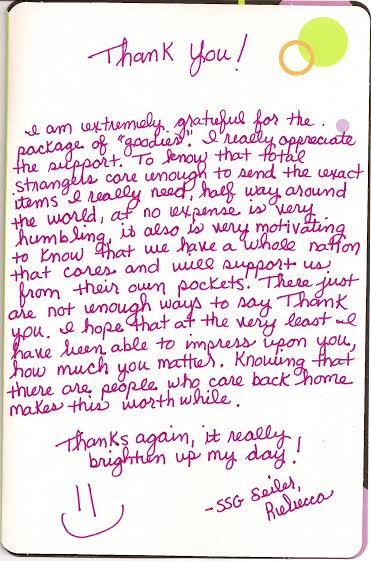 Thank You!
I am extremely grateful for the
package of "goodies". I really appreciate
the support. To know that total
strangers care enough to send the exact
items I really need, half way around
the world, at no expense is very
humbling, it also is very motivating
to know that we have a whole nation
that cares and will support us
from their own pockets. There just
are not enough ways to say Thank
you. I hope that at the very least I
have been able to impress upon you,
how much you matter. Knowing that
there are people who care back home
makes this worth while.
Thanks again, it really
brighten up my day!
-SSG Seiler,
Rebecca